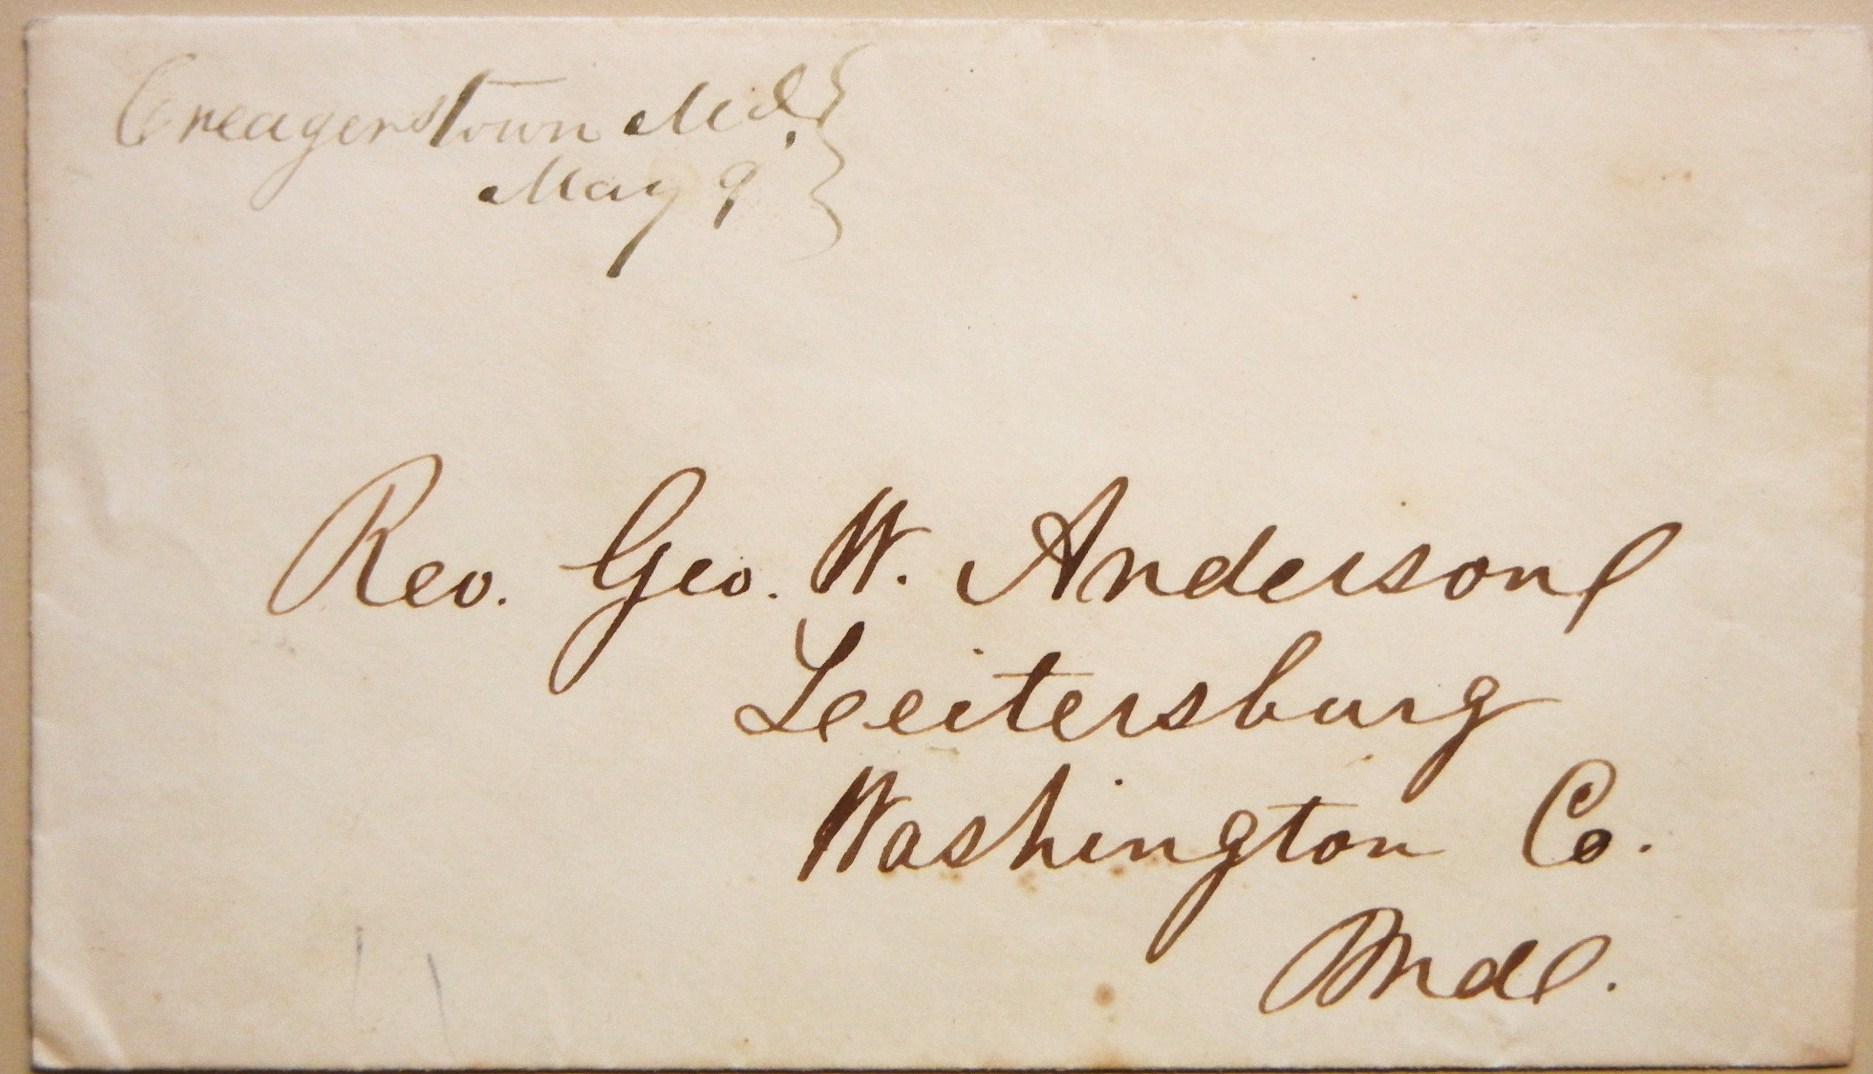 Creagerstown Md.
May 9
Rev. Geo. W. Anderson
Leeitersburg
Washington Co.
Md.